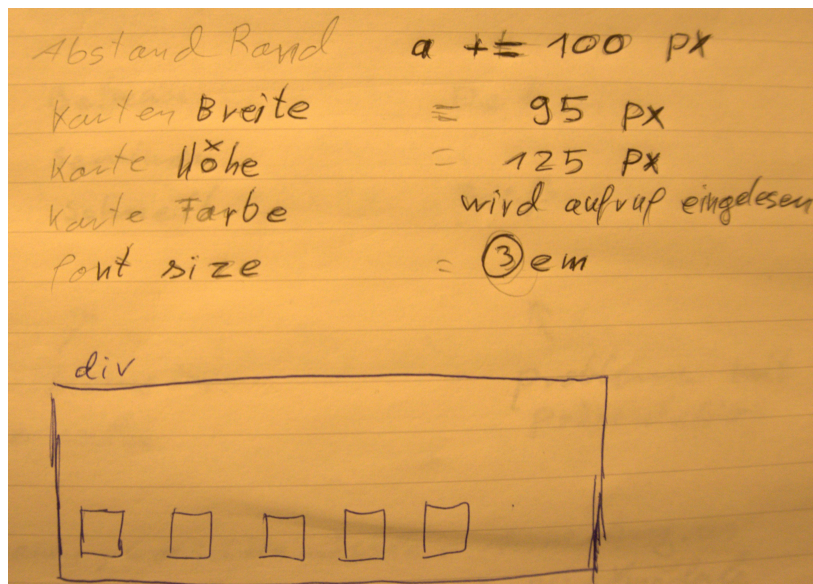 Abstand Rand a += 100 px
Karten Breite = 95 px
Karte Höhe = 125 px
Karte Farbe wird aufruf eingelesen
Font size = 3 em
div